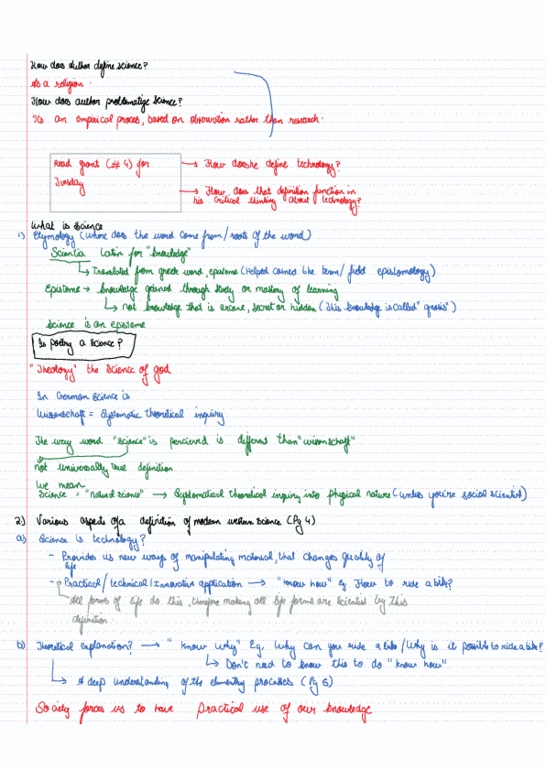 How does Author define science?
As a religion.
How does author problematize Science?
Its an empirical proces, based on observation rather than research.
Read grant (#4) for → How does he define technology?
Tuesday
→ How does that definition function in
his critical thinking about technology?
What is science
1) Etymology (where does the word come from/roots of the word)
Scientia latin for "knowledge"
↳ Translated from greek word, episteme (Helped coined the term/field epistemology)
Episteme → knowledge gained through study or mastery of learning
↳ not knowledge that is arcane, secret or hidden (this knowledge is called "gnosis")
Science is an episteme
Is poetry a science?
"Theology" the Science of god
In German Science is
Wissenschaft = Systematic theoretical inquiry
The way word "science" is percieved is different than "wissenschaft"
not universally true definition
we mean
Science = "natural science" → Systematical theoretical inquiry into physical nature (unless you're social scientist)
2) Various aspects of a definition of modern western science (Pg 4)
a) Science is technology?
- Provides us new ways of manipulating material, that changes quality of
life
- Practical/technical/Innovative application → "know how" Eg How to ride a bike?
all forms of life do this, therefore making all life forms are scientist by this
definition
b) Theoretical explanation? → "know why" Eg. Why can you ride a bike/Why is it possible to ride a bike?
↳ Don't need to know this to do "know how"
↳ A deep understanding of the elementry processes (Pg 5)
Society forces us to have practical use of our knowledge